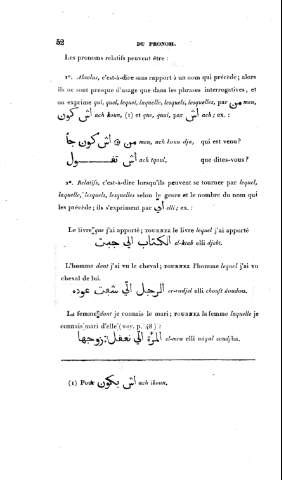 52 DU PRONOM.
Les pronoms relatifs peuvent être :
1°. Absolus, c'est-à-dire sans rapport à un nom qui précède; alors
ils ne sont presque d'usage que dans les phrases interrogatives, et
on exprime qui, quel, lequel, laquelle, lesquels, lesquelles, par من men,
اش كون ach koun, (1) et que, quoi, par اش ach; ex. :
من ou اش كون جا men, ach koun dja, qui est venu?
اش تقول ach tqoul, que dites-vous?
2°. Relatifs, c'est-à-dire lorsqu'ils peuvent se tourner par lequel,
laquelle, lesquels, lesquelles selon le genre et le nombre du nom qui
les précède; ils s'expriment par الي elli; ex. :
Le livre que j'ai apporté; TOURNEZ le livre lequel j'ai apporté
الكتاب الي جبت el-ktab elli djebt.
L'homme dont j'ai vu le cheval; TOURNEZ l'homme lequel j'ai vu
cheval de lui.
الرجل الي شفت عوده er-radjel elli chouft âoudou.
La femme dont je connais le mari; TOURNEZ la femme laquelle je
connais mari d'elle (voy. p. 48) :
المرة الي نعقل زوجها el-mra elli nâqal zoudjha.
(1) Pour اش يكون ach ikoun.